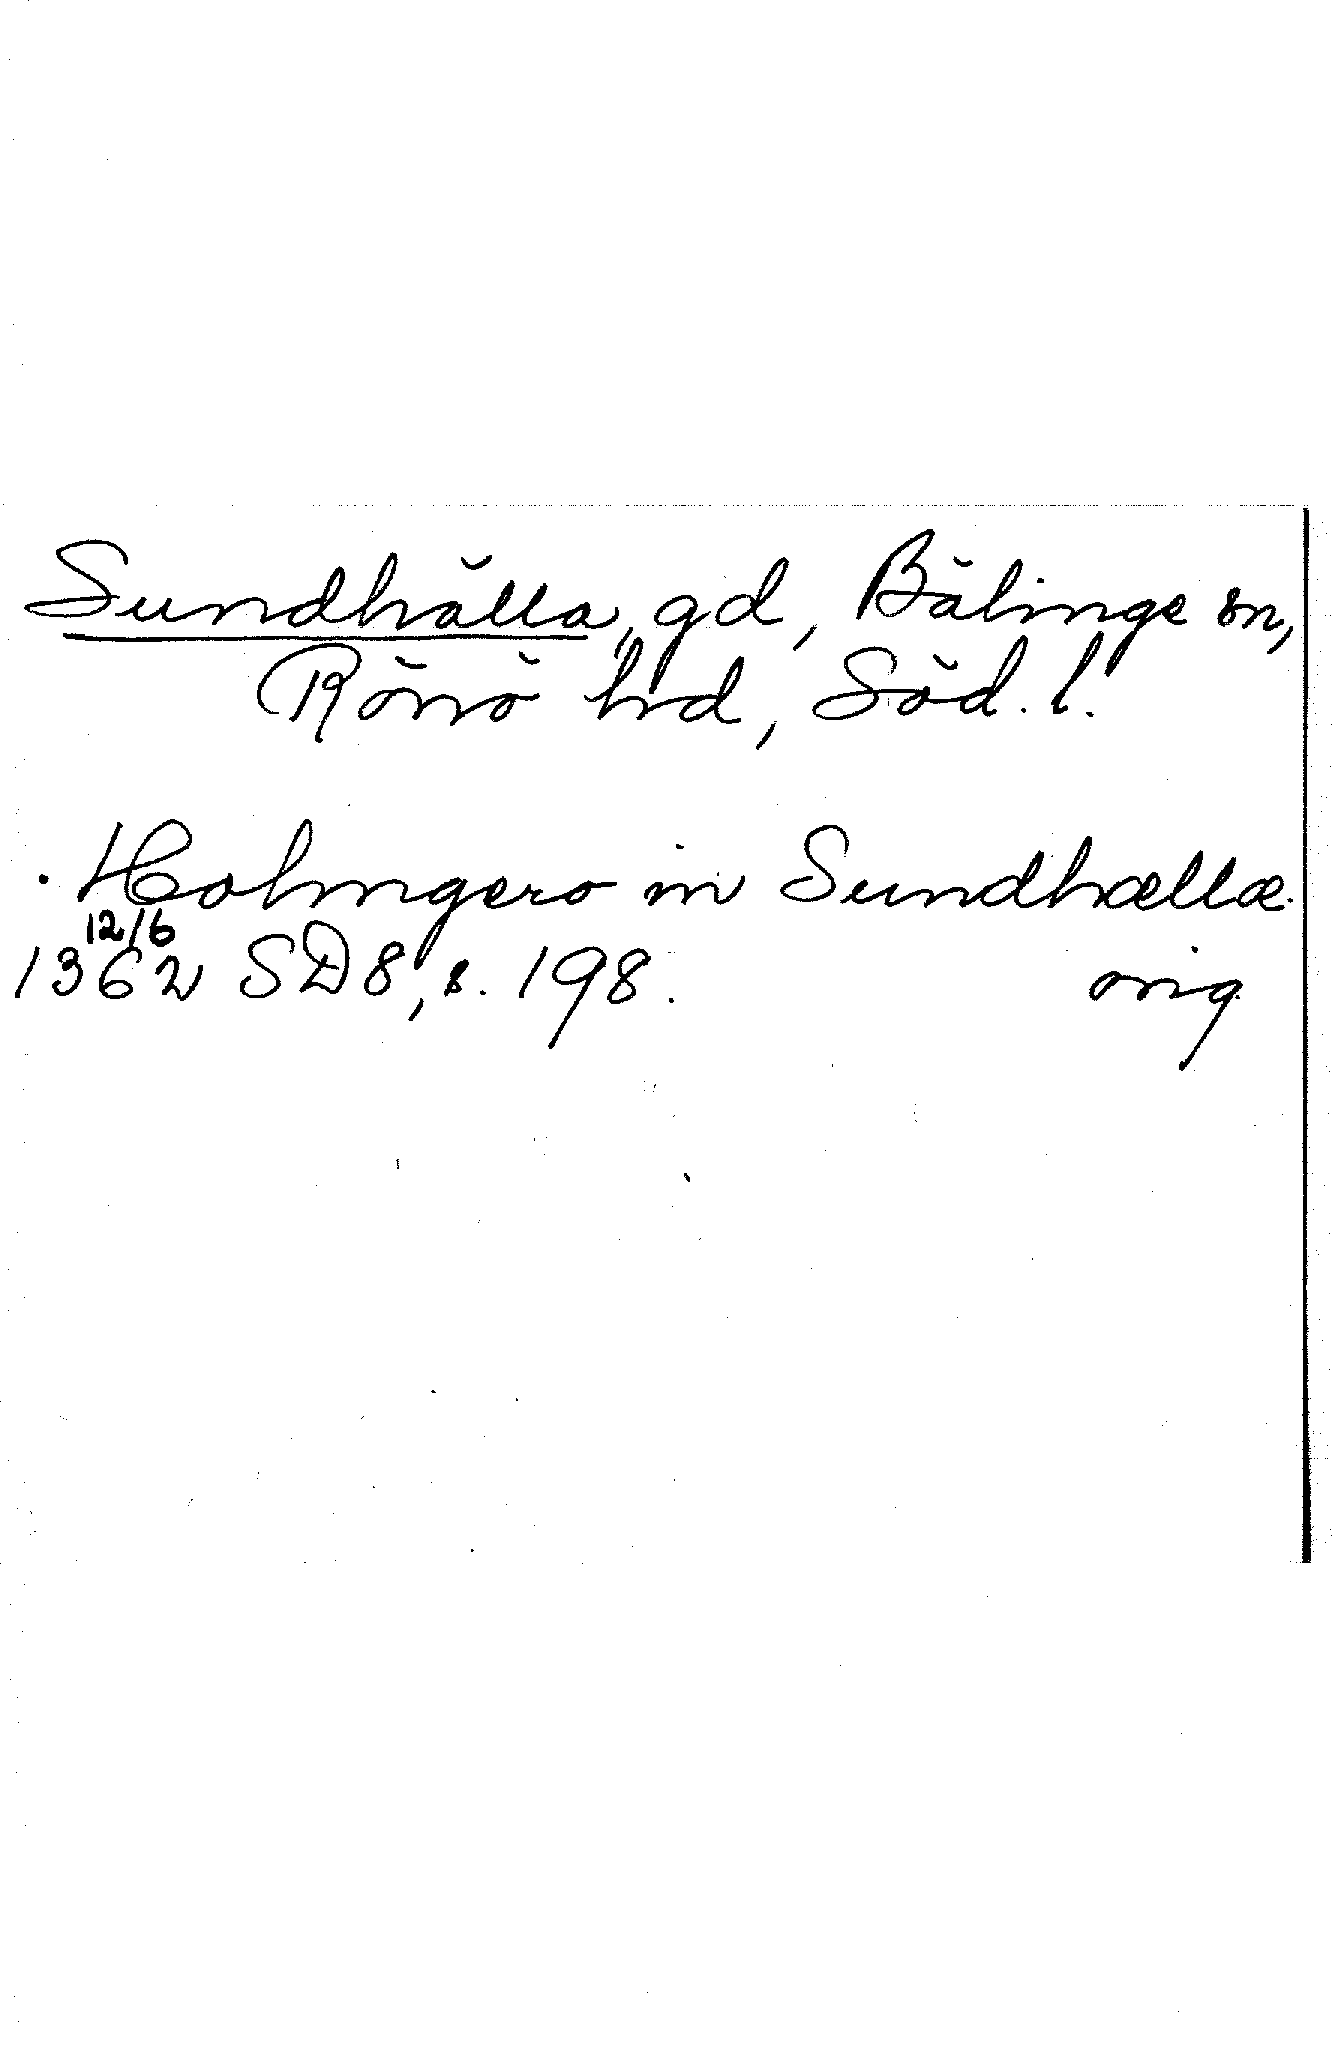 Sundhälla, gd, Bälinge sn,
Rönö hd, Söd. l.
. Holmgero in Sundhællæ.
12/6
1362 SD 8, s. 198. orig